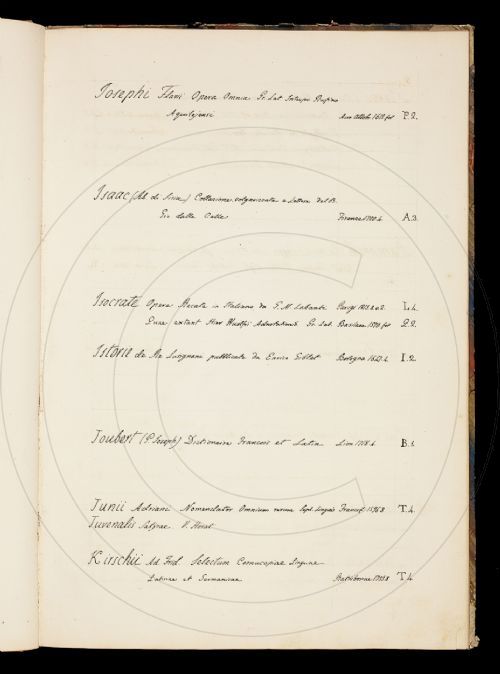 Josephi Flavii Opera Omnia Gr. Lat. Interpr. Rufino
Aquilejensi Aur. Allobr. 1611 fol P.2.
Isaac (Ab. di Siria) Collazione volgarizzata e Lettere del B.
Gio dalle Celle Firenze 1720.4. A.3.
Isocrate Opere Recate in Italiano da G. M. Labanti Parigi L.4.
extant Hier Wolfii Gr. Lat. Basileae 1570 fol P.2.
Istoria de Re Lusignani pubblicata da Enrico Giblet Bologna 1647.4. I.2.
Joubert (P. Joseph) Dictionaire Francois et Latin Lion 4. B.1.
Junii Adriani Nomenclator Omnium rerum Sept. linguis Francof. T.4.
Juvenalis Satyrae. V. Horat
Kirschii Ad. Frid. Selectum Cornucopiae Linguae
Latinae et Germanicae Ratisbonae T.4.